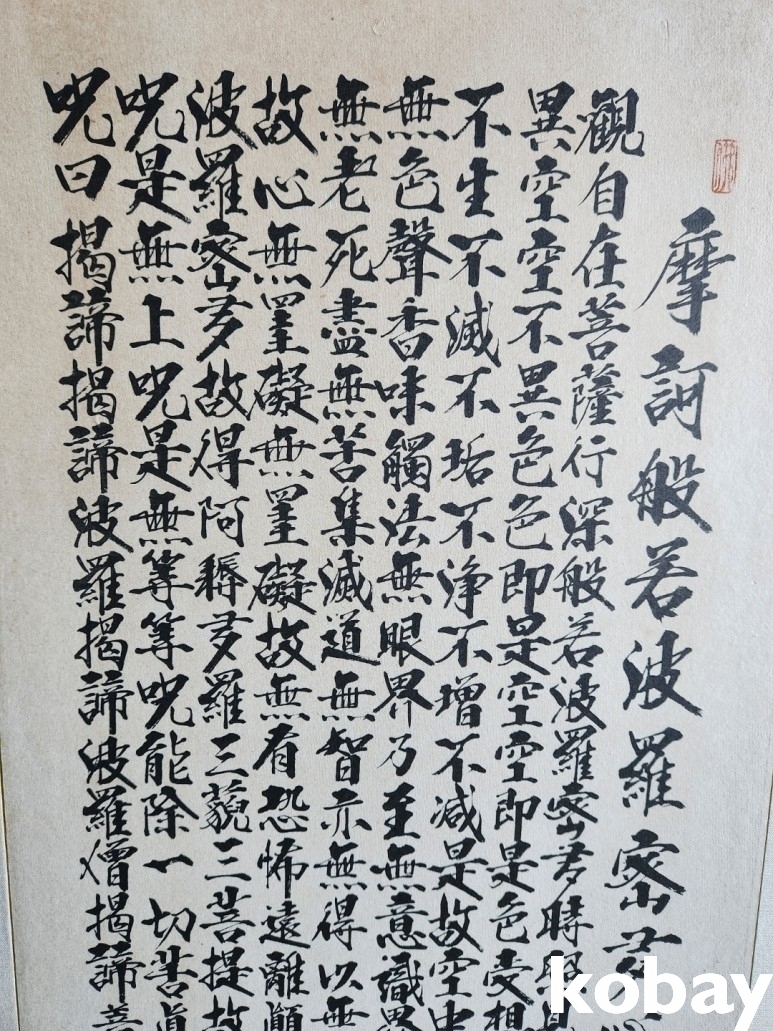 摩訶般若波羅密多
觀自在菩薩行深般若波羅密多時照見
異空空不異色色即是空空即是色受想
不生不滅不垢不浄不增不减是故空中
無色聲香味觸法無眼界乃至無意識界
無老死盡無苦集滅道無智亦無得以無
故心無罣礙無罣礙故無有恐怖遠離顛
波羅密多故得阿耨多羅三藐三菩提故
呪是無上呪是無等等呪能除一切苦真
呪曰揭諦揭諦波羅揭諦波羅僧揭諦菩
kobay